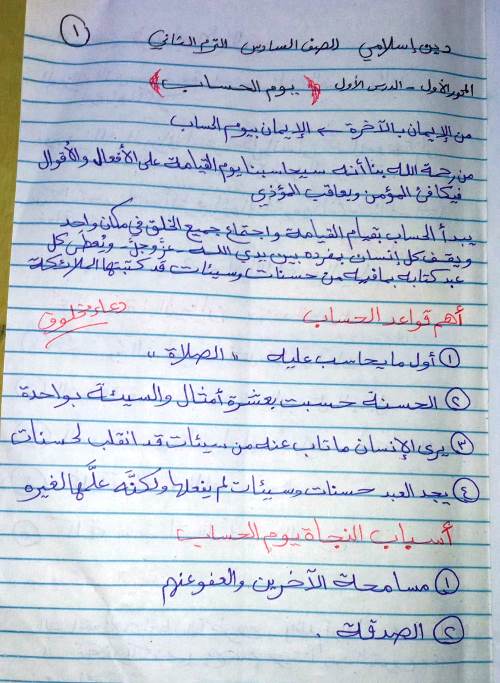 ١
دين إسلامي للصف السادس الترم الثاني
المحور الأول - الدرس الأول { يوم الحساب }
من الإيمان بالآخرة ← الإيمان بيوم الحساب
من رحمة الله بنا أنه سيحاسبنا يوم القيامة على الأفعال والأقوال
فيكافئ المؤمن ويعاقب المؤذي
يبدأ الحساب بقيام القيامة واجتماع جميع الخلق في مكان واحد
ويقف كل إنسان بمفرده بين يدي الله - عزّ وجلّ - ويُعطى كل
عبد كتابه بما فيه من حسنات وسيئات قد كتبتها الملائكة
أهم قواعد الحساب
دعاء مخلوق
① أول ما يحاسب عليه " الصلاة "
② الحسنة حسبت بعشرة أمثال والسيئة بواحدة
③ يرى الإنسان ما تاب عنه من سيئات قد انقلب لحسنات
④ يجد العبد حسنات وسيئات لم يفعلها ولكنَّه علَّمها لغيره
أسباب النجاة يوم الحساب
① مسامحة الآخرين والعفو عنهم
② الصدقة .